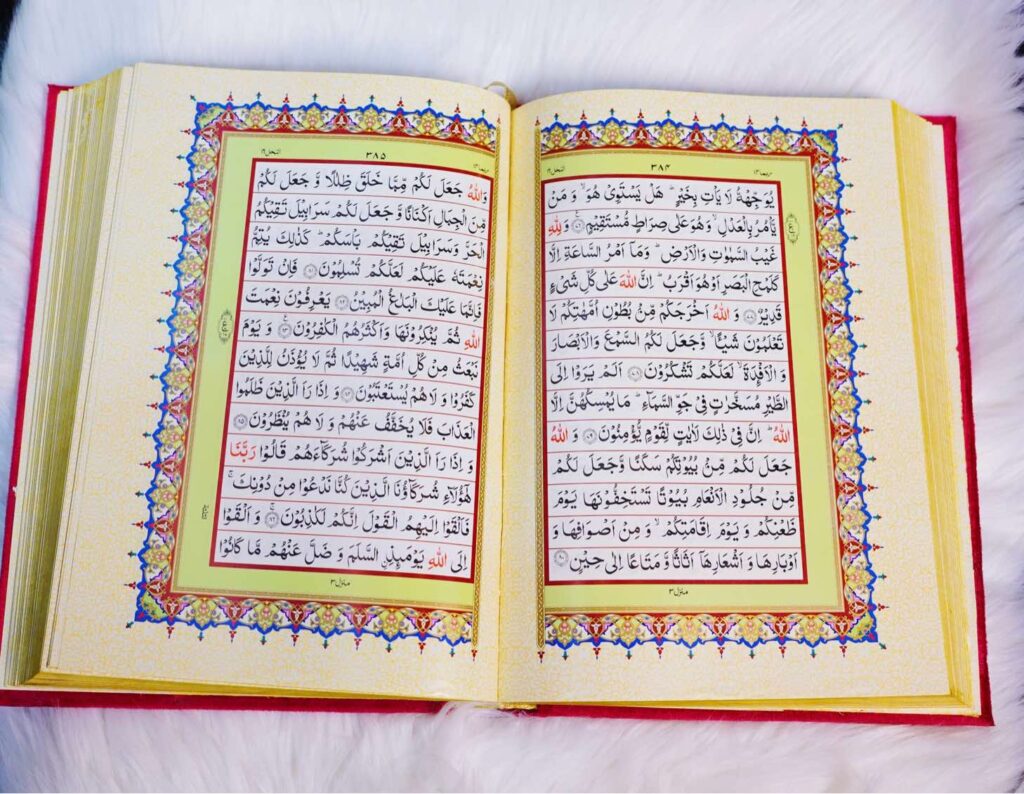 ربما ۱۴ ۳۸۴ النحل ۱۶
يُوَجِّهْهُّ لَا يَاْتِ بِخَيْرٍ ؕ هَلْ يَسْتَوِىْ هُوَ ۙ وَ مَنْ
يَّاْمُرُ بِالْعَدْلِ ۙ وَهُوَ عَلٰى صِرَاطٍ مُّسْتَقِيْمٍ ﴿۷۶﴾ وَ لِلّٰهِ
غَيْبُ السَّمٰوٰتِ وَالْاَرْضِ ؕ وَمَاۤ اَمْرُ السَّاعَةِ اِلَّا
كَلَمْحِ الْبَصَرِ اَوْ هُوَ اَقْرَبُ ؕ اِنَّ اللّٰهَ عَلٰى كُلِّ شَىْءٍ
قَدِيْرٌ ﴿۷۷﴾ وَ اللّٰهُ اَخْرَجَكُمْ مِّنْۢ بُطُوْنِ اُمَّهٰتِكُمْ لَا
تَعْلَمُوْنَ شَيْـًٔا ۙ وَّجَعَلَ لَكُمُ السَّمْعَ وَالْاَبْصَارَ
وَ الْاَفْـِٕدَةَ ۙ لَعَلَّكُمْ تَشْكُرُوْنَ ﴿۷۸﴾ اَلَمْ يَرَوْا اِلَى
الطَّيْرِ مُسَخَّرٰتٍ فِىْ جَوِّ السَّمَآءِ ؕ مَا يُمْسِكُهُنَّ اِلَّا
اللّٰهُ ؕ اِنَّ فِىْ ذٰلِكَ لَاٰيٰتٍ لِّقَوْمٍ يُّؤْمِنُوْنَ ﴿۷۹﴾ وَ اللّٰهُ
جَعَلَ لَكُمْ مِّنْۢ بُيُوْتِكُمْ سَكَنًا وَّجَعَلَ لَكُمْ
مِّنْ جُلُوْدِ الْاَنْعَامِ بُيُوْتًا تَسْتَخِفُّوْنَهَا يَوْمَ
ظَعْنِكُمْ وَ يَوْمَ اِقَامَتِكُمْ ۙ وَ مِنْ اَصْوَافِهَا وَ
اَوْبَارِهَا وَ اَشْعَارِهَاۤ اَثَاثًا وَّ مَتَاعًا اِلٰى حِيْنٍ ﴿۸۰﴾
منزل ۳
ربما ۱۴ ۳۸۵ النحل ۱۶
وَاللّٰهُ جَعَلَ لَكُمْ مِّمَّا خَلَقَ ظِلٰلًا وَّ جَعَلَ لَكُمْ
مِّنَ الْجِبَالِ اَكْنَانًا وَّ جَعَلَ لَكُمْ سَرَابِيْلَ تَقِيْكُمُ
الْحَرَّ وَسَرَابِيْلَ تَقِيْكُمْ بَاْسَكُمْ ؕ كَذٰلِكَ يُتِمُّ
نِعْمَتَهٗ عَلَيْكُمْ لَعَلَّكُمْ تُسْلِمُوْنَ ﴿۸۱﴾ فَاِنْ تَوَلَّوْا
فَاِنَّمَا عَلَيْكَ الْبَلٰغُ الْمُبِيْنُ ﴿۸۲﴾ يَعْرِفُوْنَ نِعْمَتَ
اللّٰهِ ثُمَّ يُنْكِرُوْنَهَا وَاَكْثَرُهُمُ الْكٰفِرُوْنَ ﴿۸۳﴾ وَ يَوْمَ
نَبْعَثُ مِنْ كُلِّ اُمَّةٍ شَهِيْدًا ثُمَّ لَا يُؤْذَنُ لِلَّذِيْنَ
كَفَرُوْا وَ لَا هُمْ يُسْتَعْتَبُوْنَ ﴿۸۴﴾ وَ اِذَا رَاَ الَّذِيْنَ ظَلَمُوا
الْعَذَابَ فَلَا يُخَفَّفُ عَنْهُمْ وَ لَا هُمْ يُنْظَرُوْنَ ﴿۸۵﴾
وَ اِذَا رَاَ الَّذِيْنَ اَشْرَكُوْا شُرَكَآءَهُمْ قَالُوْا رَبَّنَا
هٰٓؤُلَآءِ شُرَكَآؤُنَا الَّذِيْنَ كُنَّا نَدْعُوْا مِنْ دُوْنِكَ ۚ
فَاَلْقَوْا اِلَيْهِمُ الْقَوْلَ اِنَّكُمْ لَكٰذِبُوْنَ ﴿۸۶﴾ وَ اَلْقَوْا
اِلَى اللّٰهِ يَوْمَىِٕذِ اِ۟لسَّلَمَ وَ ضَلَّ عَنْهُمْ مَّا كَانُوْا
منزل ۳